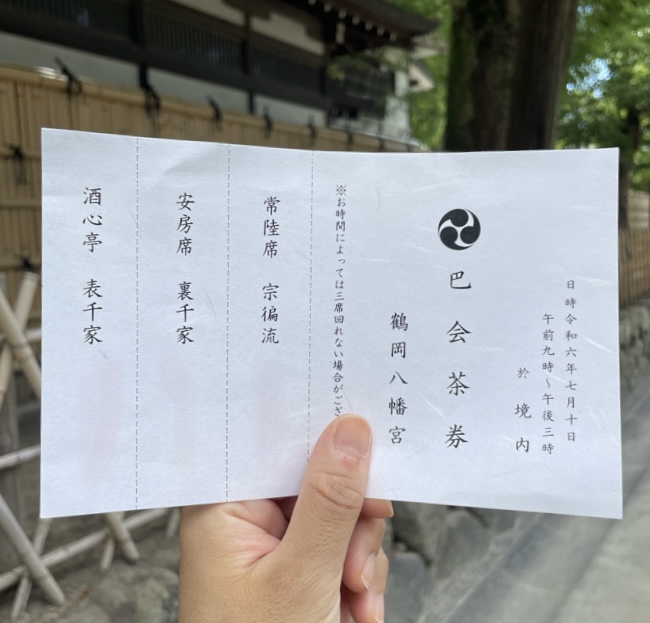 日時令和六年七月十日
午前九時～午後三時
於 境内
巴会茶券
鶴岡八幡宮
※お時間によっては三席回れない場合がござ
常陸席 宗徧流
安房席 裏千家
酒心亭 表千家